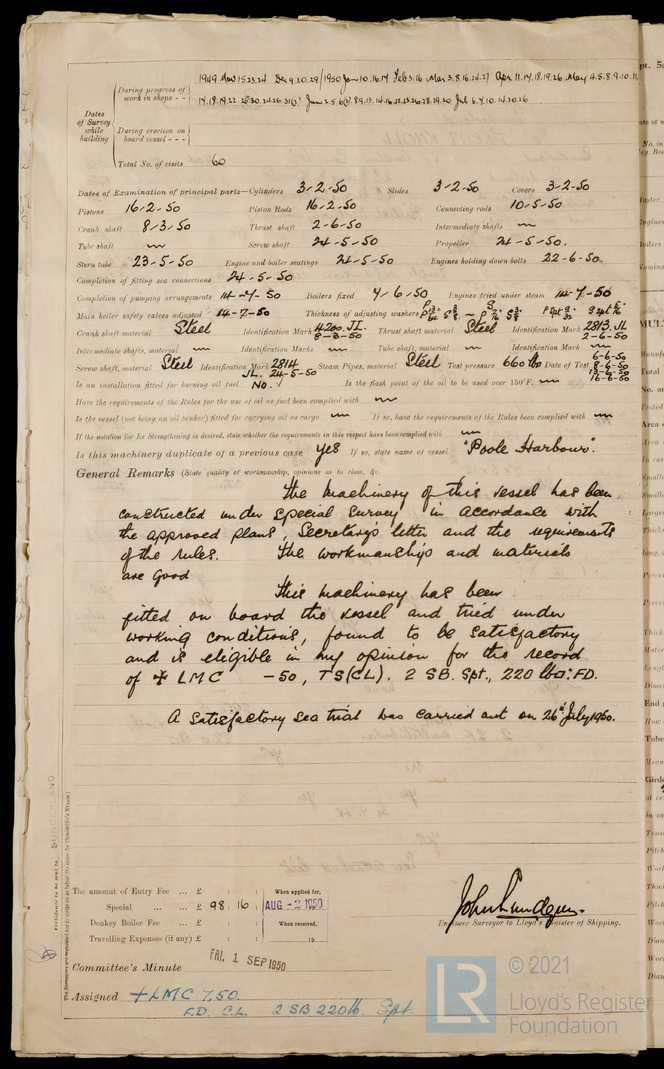 Dates of Survey while building
During progress of work in shops - - 1949 Nov 15.23.24 Dec 9.20.29/1950 Jan 10.16.17 Feb 3.16 Mar 3.8.16.24.27 Apr 11.14.18.19.26 May 4.5.8.9.10.11
During erection on board vessel - - -
Total No. of visits 60
Dates of Examination of principal parts—Cylinders 3-2-50 Slides 3-2-50 Covers 3-2-50
Pistons 16-2-50 Piston Rods 16-2-50 Connecting rods 10-5-50
Crank shaft 8/3/50 Thrust shaft 2-6-50 Intermediate shafts
Tube shaft Screw shaft 24-5-50 Propeller 24-5-50.
Stern tube 23-5-50 Engine and boiler seatings 24-5-50 Engines holding down bolts 22-6-50.
Completion of fitting sea connections 24-5-50
Completion of pumping arrangements 14-7-50 Boilers fixed 4/6/50 Engines tried under steam 14-7-50
Main boiler safety valves adjusted 14-7-50 Thickness of adjusting washers
Crank shaft material Steel Identification Mark 4200.JL. 8-3-50 Thrust shaft material Steel Identification Mark 2813.JL 2-6-50
Intermediate shafts, material Identification Marks Tube shaft, material Identification Mark
Screw shaft, material Steel Identification Mark 2814 JL. 24-5-50 Steam Pipes, material Steel Test pressure 660 lb Date of Test 6-6-50 8-6-50 13-6-50 16-6-50
Is an installation fitted for burning oil fuel No. Is the flash point of the oil to be used over 150°F.
Have the requirements of the Rules for the use of oil as fuel been complied with
Is the vessel (not being an oil tanker) fitted for carrying oil as cargo If so, have the requirements of the Rules been complied with
If the notation for Ice Strengthening is desired, state whether the requirements in this respect have been complied with
Is this machinery duplicate of a previous case Yes If so, state name of vessel "Poole Harbour".
General Remarks (State quality of workmanship, opinions as to class, &c.
The machinery of this vessel has been
constructed under Special Survey in accordance with
the approved plans, Secretary's letter and the requirements
of the rules. The workmanship and materials
are good
This machinery has been
fitted on board the vessel and tried under
working conditions, found to be satisfactory
and is eligible in my opinion for the record
of ✠ LMC -50, TS(CL). 2 SB. Spt., 220 lbs: FD.
A satisfactory sea trial was carried out on 26th July 1950.
SUNDERLAND
The amount of Entry Fee ... £ : : When applied for,
Special ... ... £ 98 : 16 : AUG -2 1950
Donkey Boiler Fee ... £ : : When received,
Travelling Expenses (if any) £ : : 19
John Lundgren.
Engineer Surveyor to Lloyd's Register of Shipping.
FRI. 1 SEP 1950
Committee's Minute
Assigned +LMC 7.50.
F.D. C.L. 2 SB 220 lb. Spt.
© 2021
LR
Lloyd's Register
Foundation